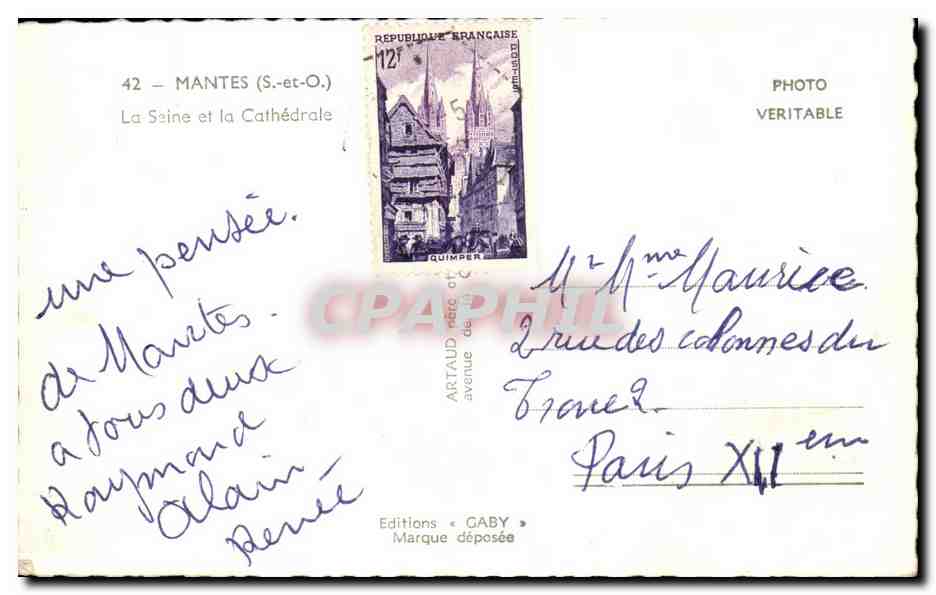 42 — MANTES (S.-et-O.)
La Seine et la Cathédrale
RÉPUBLIQUE FRANÇAISE
12F
POSTES
QUIMPER
PHOTO
VERITABLE
une pensée.
de Mantes.
a tous deux
Raymond
Alain
Renée
ARTAUD père et
avenue de la C
Mr Mme Maurice
2 rue des colonnes du
Trone 2.
Paris XII em
Editions « GABY »
Marque déposée
CPAPHIL